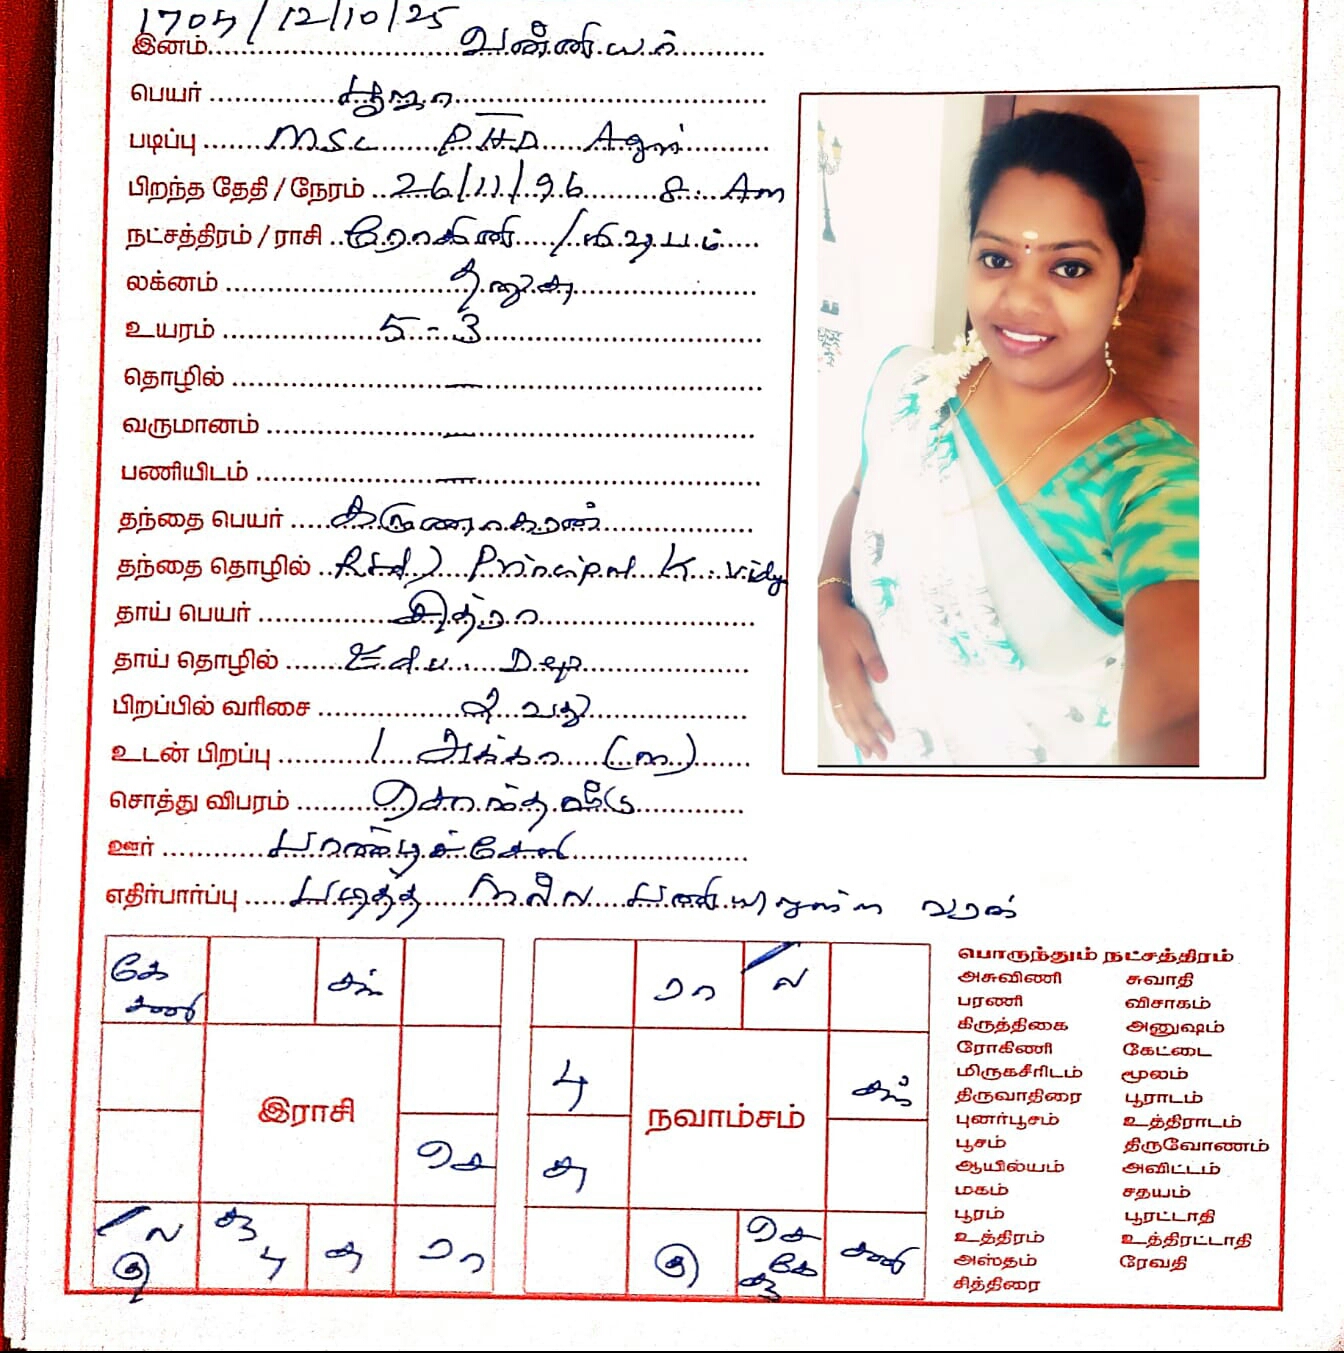 1705/12/10/25
இனம் வன்னியர்
பெயர் பூஜா
படிப்பு MSc PHD Agri
பிறந்த தேதி / நேரம் 26/11/96 8. Am
நட்சத்திரம் / ராசி ரோகிணி / ரிஷபம்
லக்னம் தனுசு
உயரம் 5-3
தொழில் —
வருமானம் —
பணியிடம் —
தந்தை பெயர் கருணாகரன்
தந்தை தொழில் Rtd) Principal K. Vidy
தாய் பெயர் சித்ரா
தாய் தொழில் Dep
பிறப்பில் வரிசை 2 வது
உடன் பிறப்பு 1 அக்கா (ம)
சொத்து விபரம் சொந்த வீடு
ஊர் பாண்டிச்சேரி
எதிர்பார்ப்பு படித்த நல்ல பணியிலுள்ள வரன்
கே சனி சந்
இராசி
செ
ல குரு சூ பு சு ரா
ரா ல
பு சந்
நவாம்சம்
சு
குரு செ கே சூ சனி
பொருந்தும் நட்சத்திரம்
அசுவிணி சுவாதி
பரணி விசாகம்
கிருத்திகை அனுஷம்
ரோகிணி கேட்டை
மிருகசீரிடம் மூலம்
திருவாதிரை பூராடம்
புனர்பூசம் உத்திராடம்
பூசம் திருவோணம்
ஆயில்யம் அவிட்டம்
மகம் சதயம்
பூரம் பூரட்டாதி
உத்திரம் உத்திரட்டாதி
அஸ்தம் ரேவதி
சித்திரை